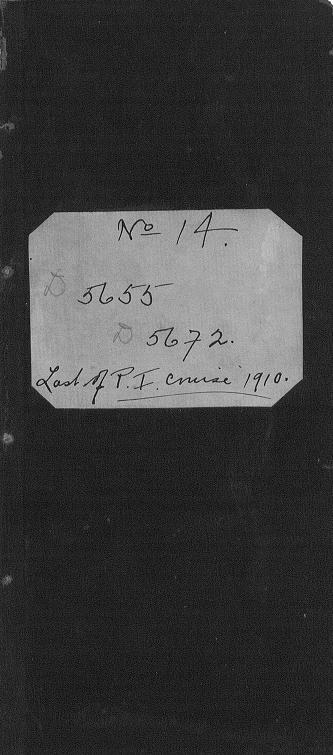 No 14.
D 5655
D 5672.
Last of P. I. cruise 1910.